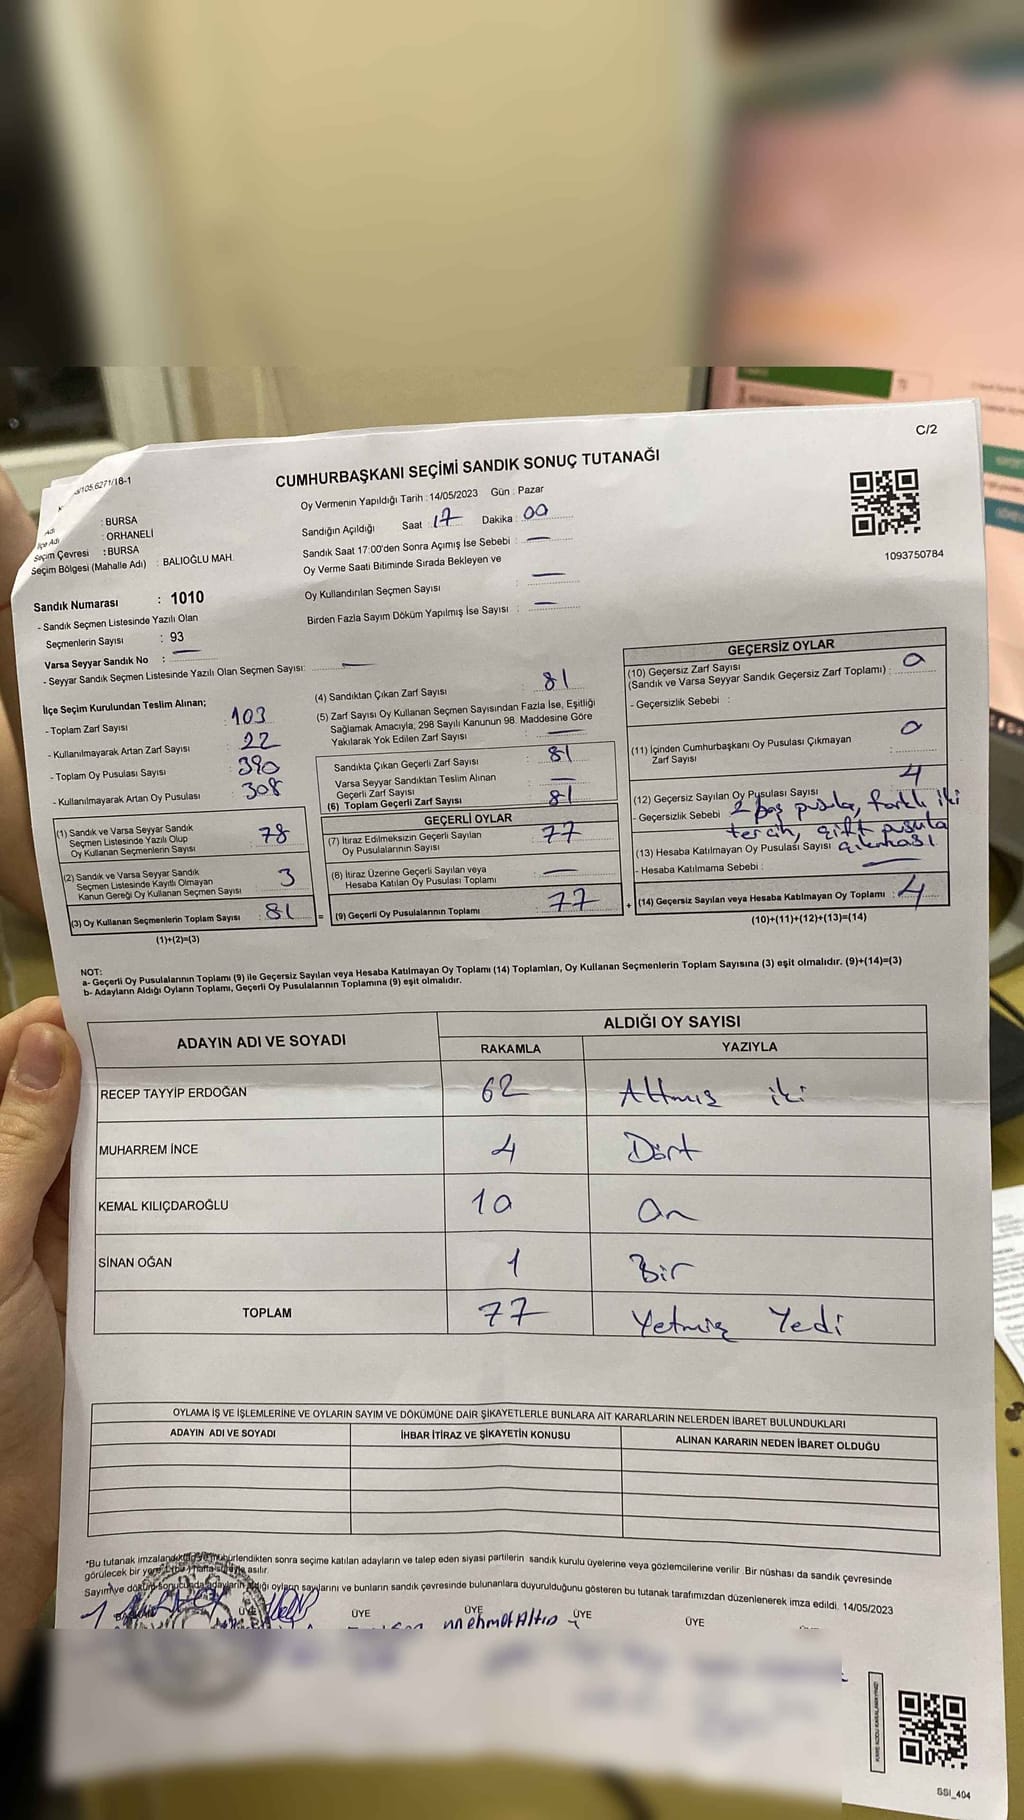 C/2
CUMHURBAŞKANI SEÇİMİ SANDIK SONUÇ TUTANAĞI
: BURSA
İlçe Adı : ORHANELİ
Seçim Çevresi : BURSA
Seçim Bölgesi (Mahalle Adı) : BALIOĞLU MAH.
Sandık Numarası : 1010
- Sandık Seçmen Listesinde Yazılı Olan
Seçmenlerin Sayısı : 93
Varsa Seyyar Sandık No : —
- Seyyar Sandık Seçmen Listesinde Yazılı Olan Seçmen Sayısı: —
Oy Vermenin Yapıldığı Tarih : 14/05/2023 Gün : Pazar
Sandığın Açıldığı Saat : 17 Dakika : 00
Sandık Saat 17:00'den Sonra Açımış İse Sebebi : —
Oy Verme Saati Bitiminde Sırada Bekleyen ve
Oy Kullandırılan Seçmen Sayısı : —
Birden Fazla Sayım Döküm Yapılmış İse Sayısı : —
1093750784
İlçe Seçim Kurulundan Teslim Alınan;
- Toplam Zarf Sayısı : 103
- Kullanılmayarak Artan Zarf Sayısı : 22
- Toplam Oy Pusulası Sayısı : 390
- Kullanılmayarak Artan Oy Pusulası : 308
(1) Sandık ve Varsa Seyyar Sandık
Seçmen Listesinde Yazılı Olup
Oy Kullanan Seçmenlerin Sayısı : 78
(2) Sandık ve Varsa Seyyar Sandık
Seçmen Listesinde Kayıtlı Olmayan
Kanun Gereği Oy Kullanan Seçmen Sayısı : 3
(3) Oy Kullanan Seçmenlerin Toplam Sayısı : 81
(1)+(2)=(3)
(4) Sandıktan Çıkan Zarf Sayısı : 81
(5) Zarf Sayısı Oy Kullanan Seçmen Sayısından Fazla İse, Eşitliği
Sağlamak Amacıyla, 298 Sayılı Kanunun 98. Maddesine Göre
Yakılarak Yok Edilen Zarf Sayısı : —
Sandıkta Çıkan Geçerli Zarf Sayısı : 81
Varsa Seyyar Sandıktan Teslim Alınan
Geçerli Zarf Sayısı : —
(6) Toplam Geçerli Zarf Sayısı : 81
GEÇERLİ OYLAR
(7) İtiraz Edilmeksizin Geçerli Sayılan
Oy Pusulalarının Sayısı : 77
(8) İtiraz Üzerine Geçerli Sayılan veya
Hesaba Katılan Oy Pusulası Toplamı : —
= (9) Geçerli Oy Pusulalarının Toplamı : 77
GEÇERSİZ OYLAR
(10) Geçersiz Zarf Sayısı
(Sandık ve Varsa Seyyar Sandık Geçersiz Zarf Toplamı) : 0
- Geçersizlik Sebebi :
(11) İçinden Cumhurbaşkanı Oy Pusulası Çıkmayan
Zarf Sayısı : 0
(12) Geçersiz Sayılan Oy Pusulası Sayısı : 4
- Geçersizlik Sebebi 2 boş pusula, farklı iki
tercih, çift pusula
çıkması
(13) Hesaba Katılmayan Oy Pusulası Sayısı —
- Hesaba Katılmama Sebebi :
+ (14) Geçersiz Sayılan veya Hesaba Katılmayan Oy Toplamı : 4
(10)+(11)+(12)+(13)=(14)
NOT:
a- Geçerli Oy Pusulalarının Toplamı (9) ile Geçersiz Sayılan veya Hesaba Katılmayan Oy Toplamı (14) Toplamları, Oy Kullanan Seçmenlerin Toplam Sayısına (3) eşit olmalıdır. (9)+(14)=(3)
b- Adayların Aldığı Oyların Toplamı, Geçerli Oy Pusulalarının Toplamına (9) eşit olmalıdır.
ADAYIN ADI VE SOYADI ALDIĞI OY SAYISI
RAKAMLA YAZIYLA
RECEP TAYYİP ERDOĞAN 62 Altmış iki
MUHARREM İNCE 4 Dört
KEMAL KILIÇDAROĞLU 10 On
SİNAN OĞAN 1 Bir
TOPLAM 77 Yetmiş Yedi
OYLAMA İŞ VE İŞLEMLERİNE VE OYLARIN SAYIM VE DÖKÜMÜNE DAİR ŞİKAYETLERLE BUNLARA AİT KARARLARIN NELERDEN İBARET BULUNDUKLARI
ADAYIN ADI VE SOYADI İHBAR İTİRAZ VE ŞİKAYETİN KONUSU ALINAN KARARIN NEDEN İBARET OLDUĞU
*Bu tutanak imzalandıktan ve mühürlendikten sonra seçime katılan adayların ve talep eden siyasi partilerin sandık kurulu üyelerine veya gözlemcilerine verilir. Bir nüshası da sandık çevresinde
görülecek bir yere asılır.
Sayım ve döküm sonucunda adayların aldığı oyların sayılarını ve bunların sandık çevresinde bulunanlara duyurulduğunu gösteren bu tutanak tarafımızdan düzenlenerek imza edildi. 14/05/2023
ÜYE ÜYE ÜYE ÜYE
SSI_404